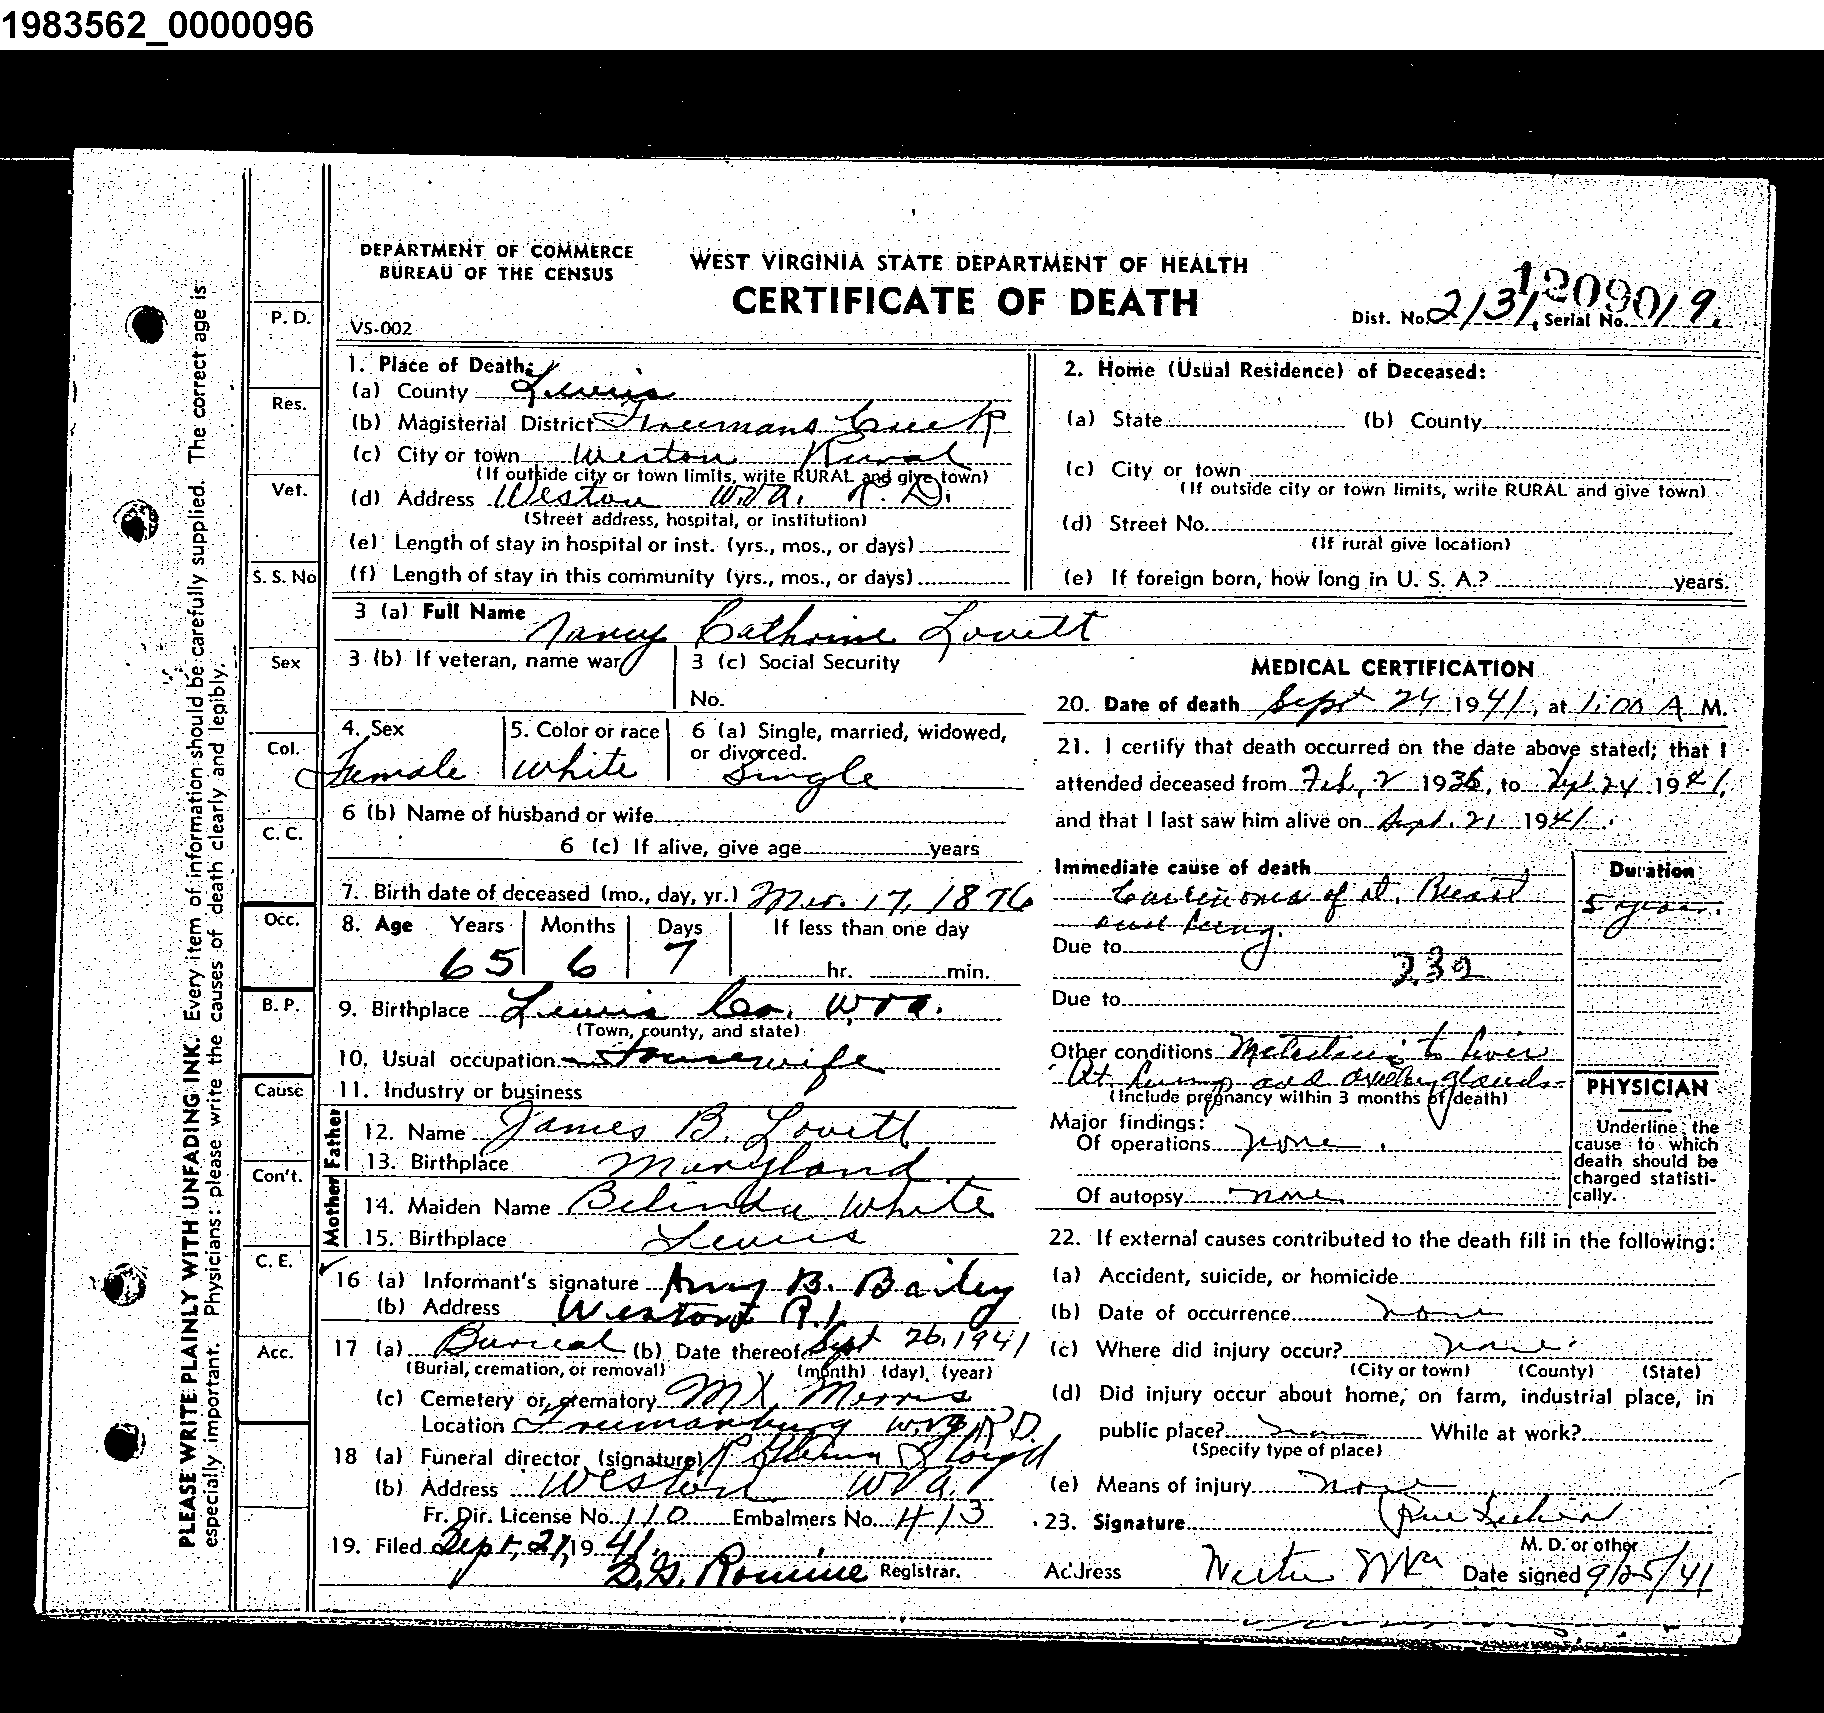 1983562_0000096
DEPARTMENT OF COMMERCE
BUREAU OF THE CENSUS
WEST VIRGINIA STATE DEPARTMENT OF HEALTH
CERTIFICATE OF DEATH
12090
VS-002
Dist. No. 2131, Serial No. 019.
1. Place of Death:
(a) County Lewis
(b) Magisterial District Freemans Creek
(c) City or town Weston Rural
(If outside city or town limits, write RURAL and give town)
(d) Address Weston W.Va. R.D.
(Street address, hospital, or institution)
(e) Length of stay in hospital or inst. (yrs., mos., or days)
(f) Length of stay in this community (yrs., mos., or days)
2. Home (Usual Residence) of Deceased:
(a) State (b) County
(c) City or town
(If outside city or town limits, write RURAL and give town)
(d) Street No.
(If rural give location)
(e) If foreign born, how long in U. S. A.? years.
3 (a) Full Name Nancy Cathrine Lovett
3 (b) If veteran, name war
3 (c) Social Security
No.
4. Sex Female
5. Color or race White
6 (a) Single, married, widowed,
or divorced. Single
6 (b) Name of husband or wife
6 (c) If alive, give age years
7. Birth date of deceased (mo., day, yr.) Mar. 17, 1876
8. Age Years Months Days If less than one day
65 6 7 hr. min.
9. Birthplace Lewis Co. W.Va.
(Town, county, and state)
10. Usual occupation Housewife
11. Industry or business
Father
12. Name James B. Lovett
13. Birthplace Maryland
Mother
14. Maiden Name Belinda White
15. Birthplace Lewis
16 (a) Informant's signature Amy B. Bailey
(b) Address Weston R.1
17 (a) Bureal (b) Date thereof Sept 26, 1941
(Burial, cremation, or removal) (month) (day) (year)
(c) Cemetery or crematory Mt Morris
Location Freemansburg W.Va R.D.
18 (a) Funeral director (signature)
(b) Address Weston W.Va.
Fr. Dir. License No. 110 Embalmers No. 413
19. Filed Sept. 27, 1941.
Romine Registrar.
MEDICAL CERTIFICATION
20. Date of death Sept 24 1941, at 1:00 A M.
21. I certify that death occurred on the date above stated; that I
attended deceased from Feb, 2 1936, to Sept. 24 1941,
and that I last saw him alive on Sept. 21 1941.
Immediate cause of death
Carcinoma of rt. Breast
and Lung.
Duration
5 years.
Due to
Due to
Other conditions Metastasis to liver
Rt. hump and axillary glands
(Include pregnancy within 3 months of death)
Major findings:
Of operations none.
Of autopsy none
PHYSICIAN
Underline the
cause to which
death should be
charged statisti-
cally.
22. If external causes contributed to the death fill in the following:
(a) Accident, suicide, or homicide
(b) Date of occurrence none
(c) Where did injury occur? none
(City or town) (County) (State)
(d) Did injury occur about home, on farm, industrial place, in
public place? While at work?
(Specify type of place)
(e) Means of injury none
23. Signature
M. D. or other
Address Weston WVa Date signed 9/25/41
P. D.
Res.
Vet.
S. S. No
Sex
Col.
C. C.
Occ.
B. P.
Cause
Con't.
C. E.
Acc.
PLEASE WRITE PLAINLY WITH UNFADING INK. Every item of information should be carefully supplied. The correct age is
especially important. Physicians: please write the causes of death clearly and legibly.